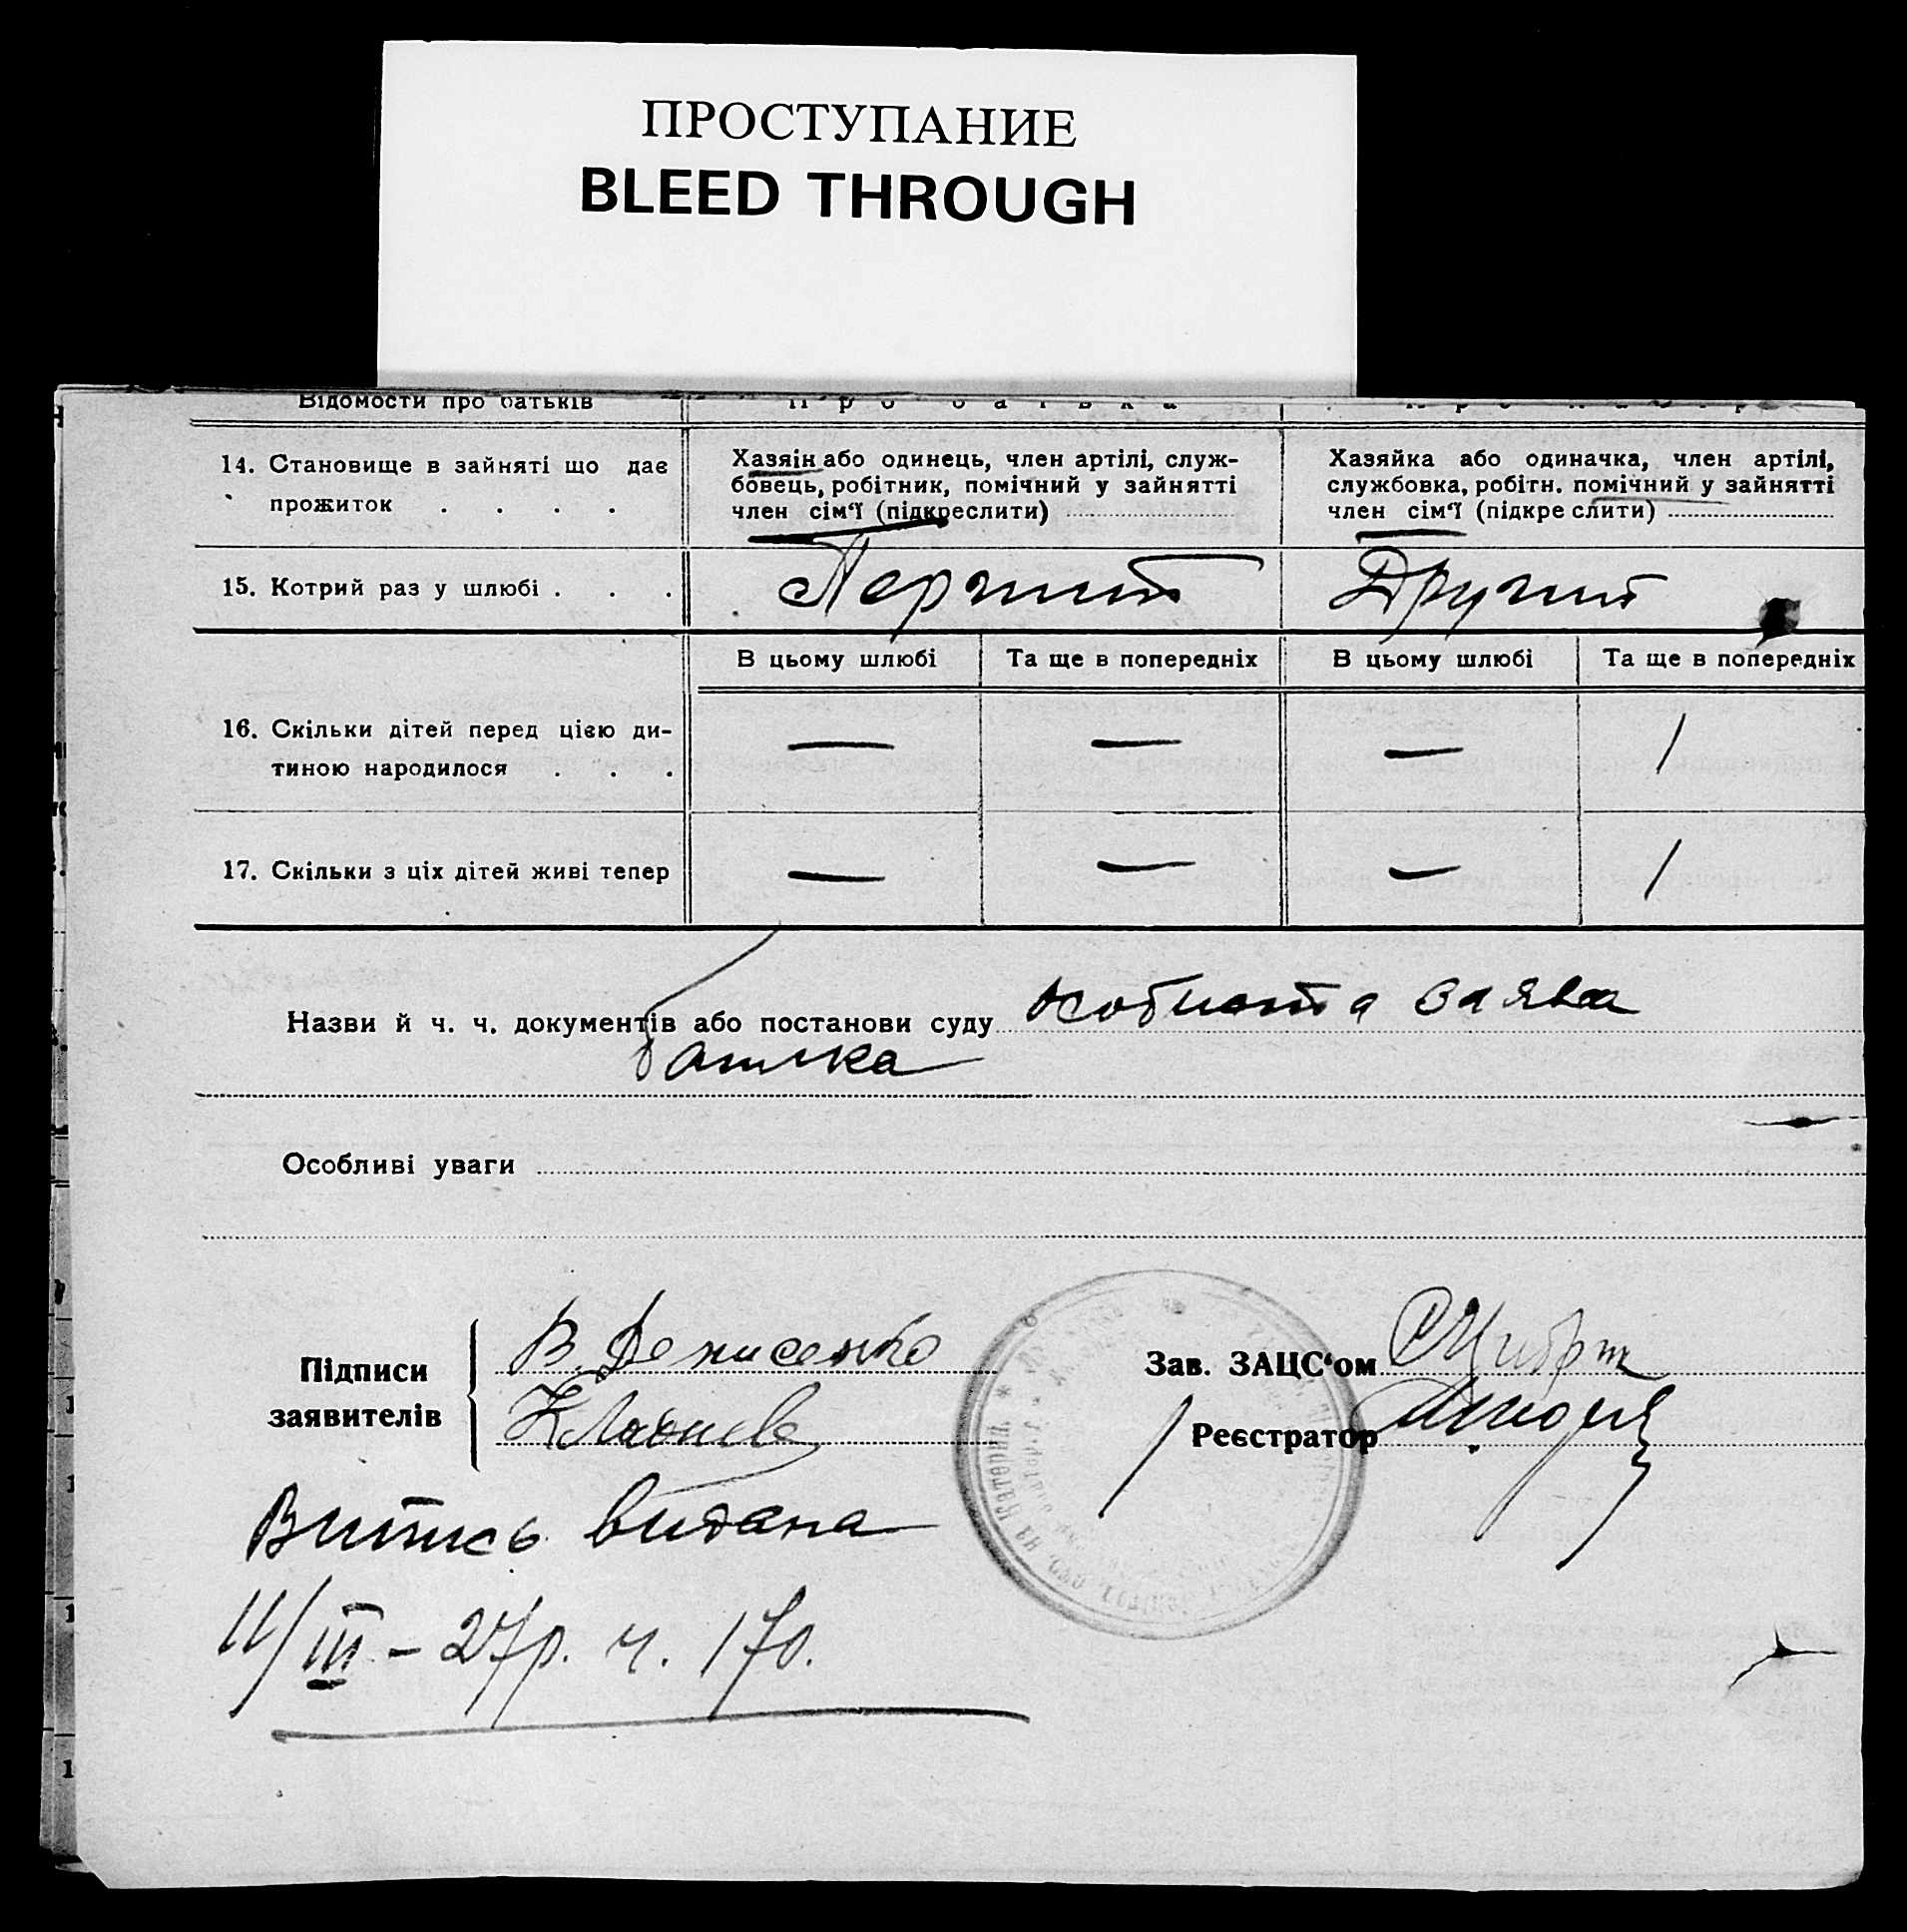 ПРОСТУПАНИЕ
BLEED THROUGH
Відомости про батьків
Про батька
14. Становище в зайняті що дає
прожиток . . . .
Хазяін або одинець, член артілі, служ-
бовець, робітник, помічний у зайнятті
член сім‘ї (підкреслити)
Хазяйка або одиначка, член артілі,
службовка, робітн. помічний у зайнятті
член сім‘ї (підкре слити)
15. Котрий раз у шлюбі . . .
Перший
Другий
В цьому шлюбі
Та ще в попередніх
В цьому шлюбі
Та ще в попередніх
16. Скільки дітей перед цією ди-
тиною народилося . . .
— — — 1
17. Скільки з ціх дітей живі тепер
— — — 1
Назви й ч. ч. документів або постанови суду особиста заява
батька
Особливі уваги
Підписи
заявителів
В. Денисенко
Зав. ЗАЦС‘ом
Реєстратор
Витись видана
11/III – 27р. ч. 170.